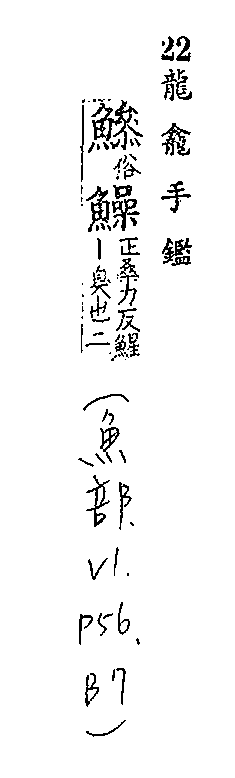 22龍龕手鑑
俗
鱢正桑刀反鯹
丨臭也二
(魚部. V1. P56. B7)